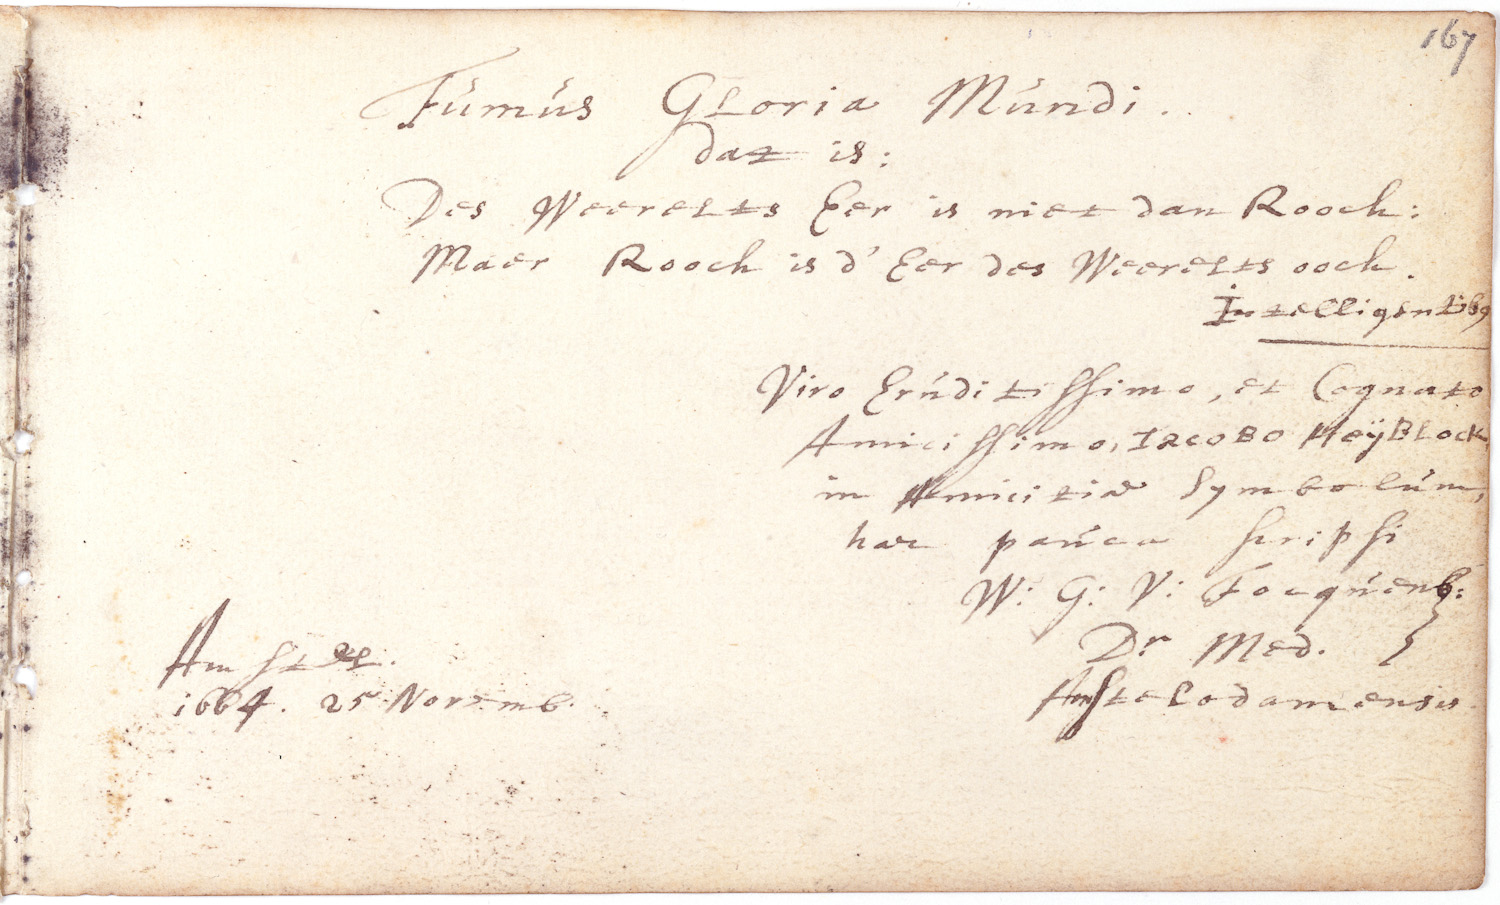 167
Fúmús Gloria Múndi.
dat is:
Des Weerelts Eer is niet dan Rooch:
Maer Rooch is d' Eer des Weerelts ooch.
Intelligentib9
Viro Erúditissimo, et Cognato
Amicissimo, IACOBO HEŸBLOCK,
in Amicitiæ Symbolúm,
hæc paúca scripsi
W: G: V: Focqúenb:
Dr Med.
Amstelodamensis.
Amstel.
1664. 25 Novemb.